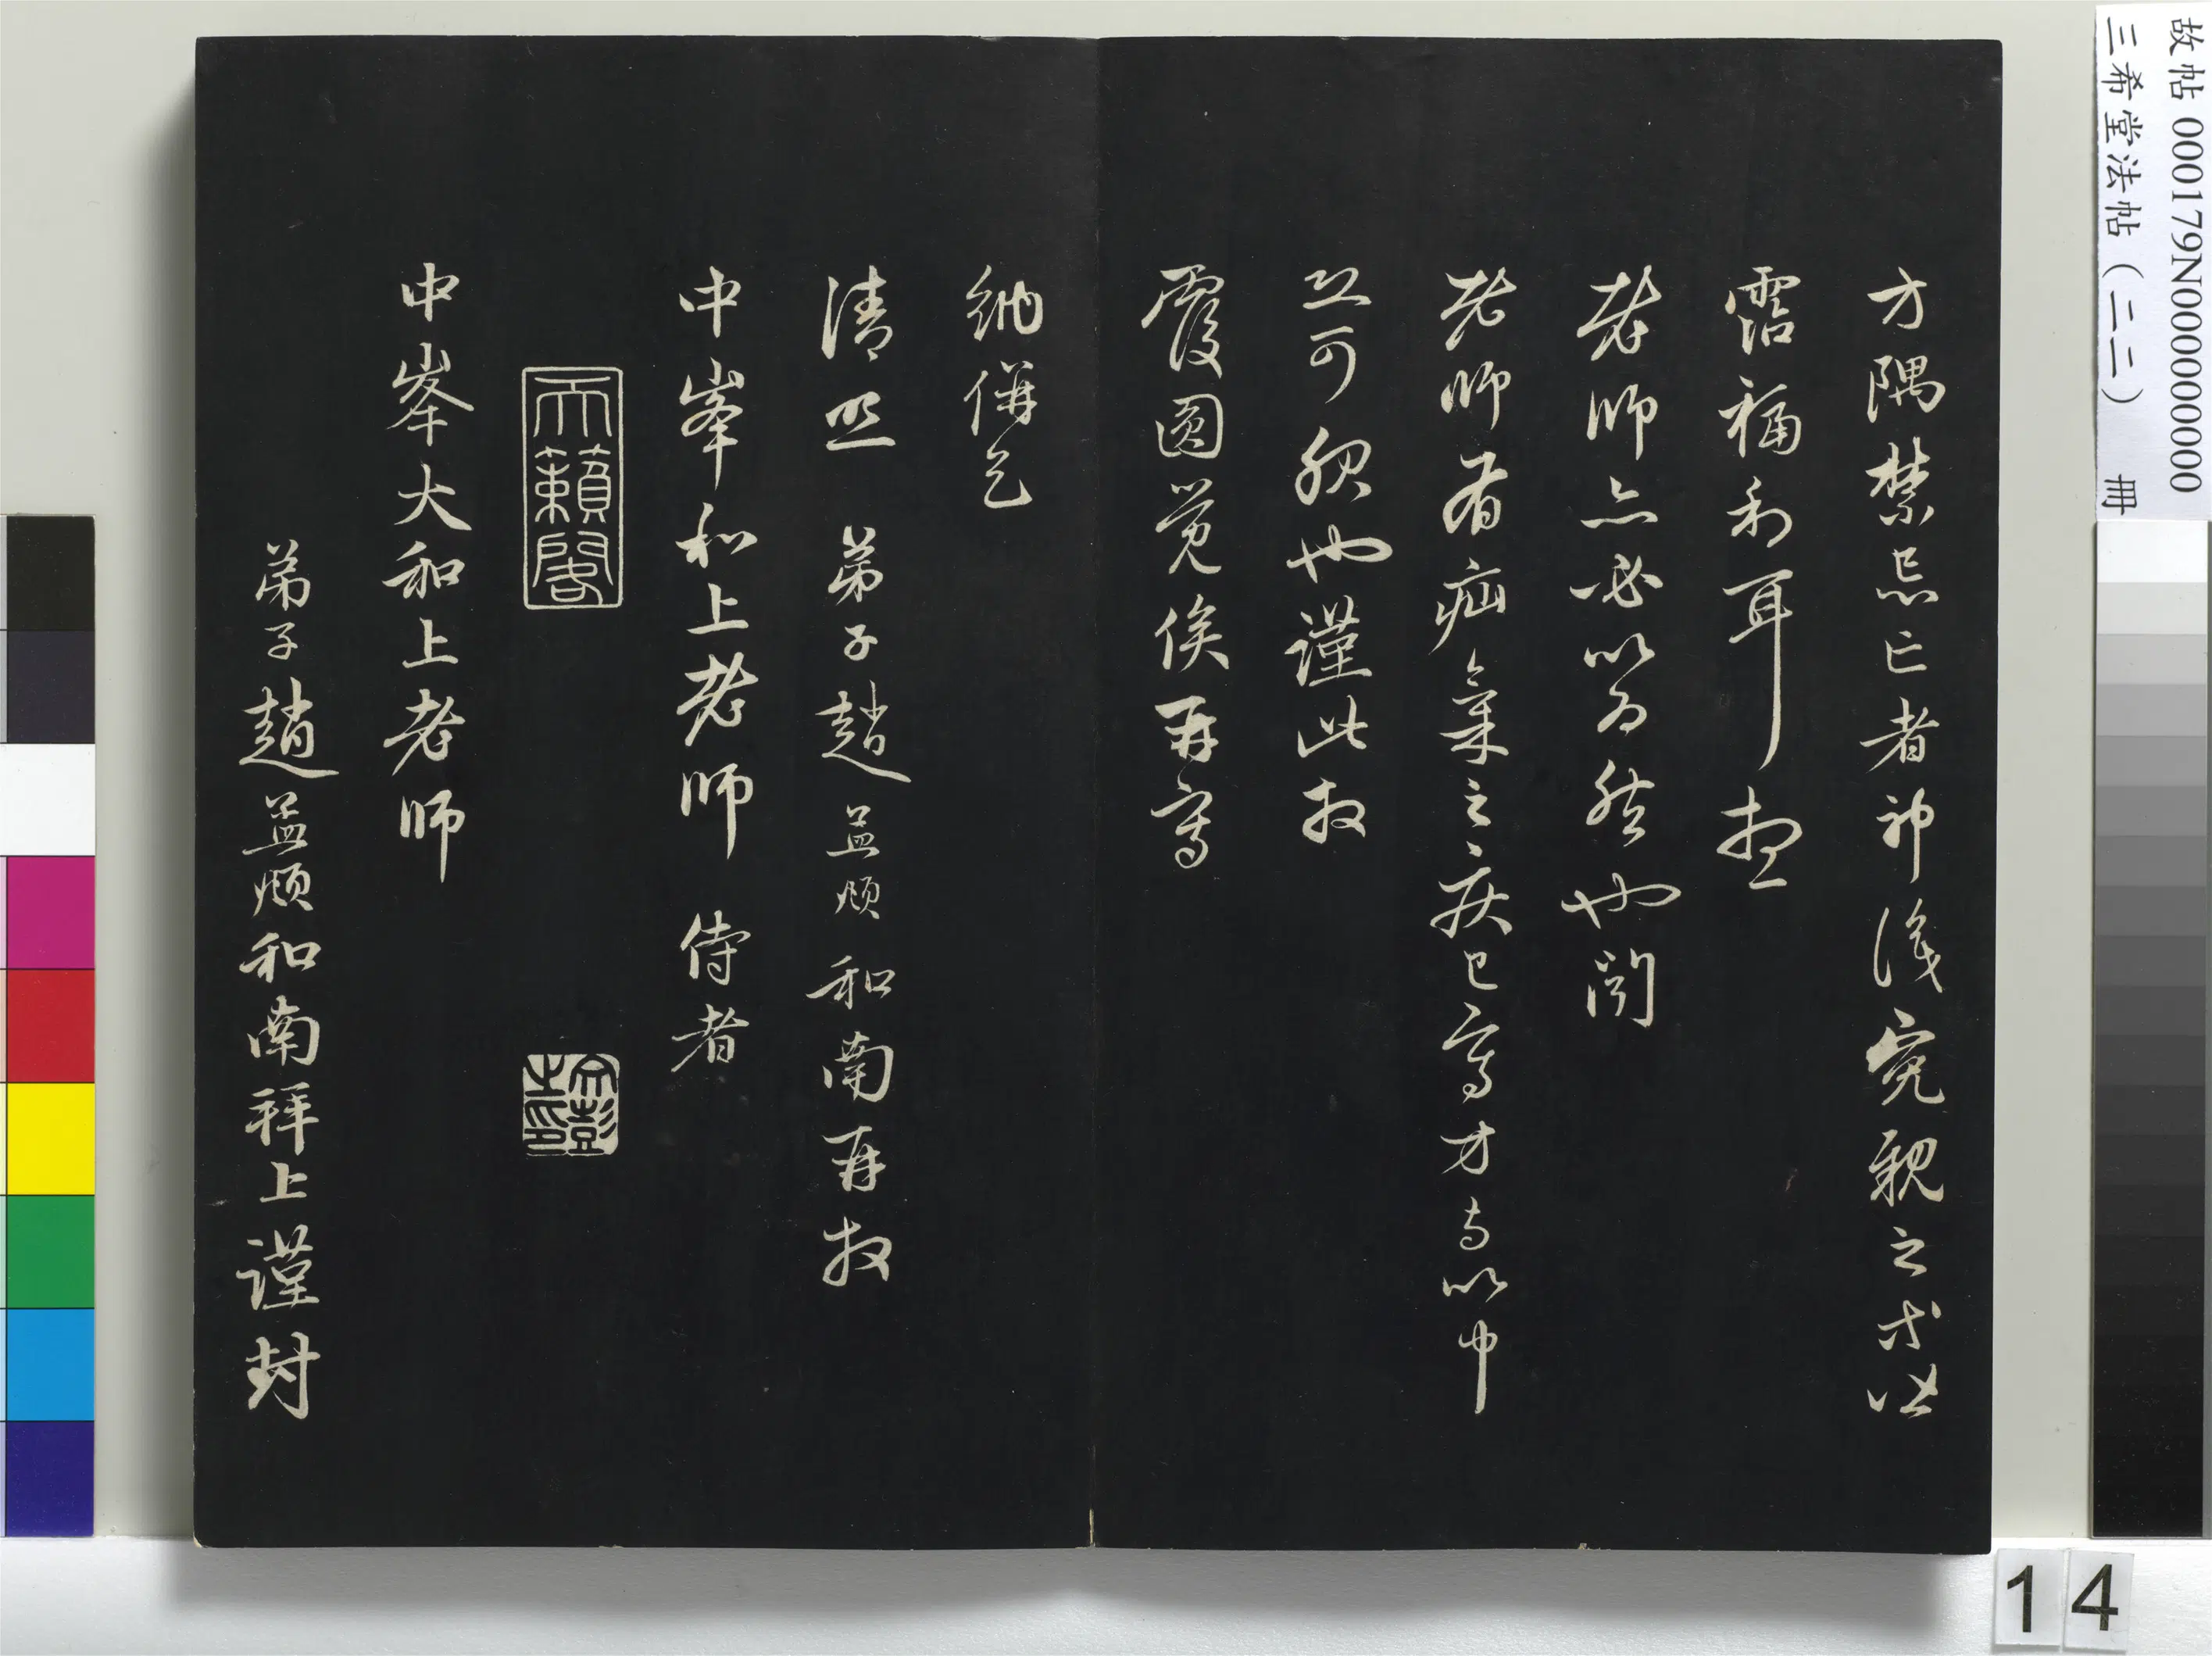 方隅禁忌亡者神識冤親之等皆
霑福利耳想
老師亦必以為然也聞
老師有疝氣之疾已寫方與以中
並可服也謹此拜
覆圓覺俟再寫
納併乞
清照 弟子趙孟頫和南再拜
中峯和上老師 侍者
天籟閣
中峯大和上老師
弟子趙孟頫和南拜上謹封
故帖 000179N000000000
三希堂法帖（二二） 冊
14